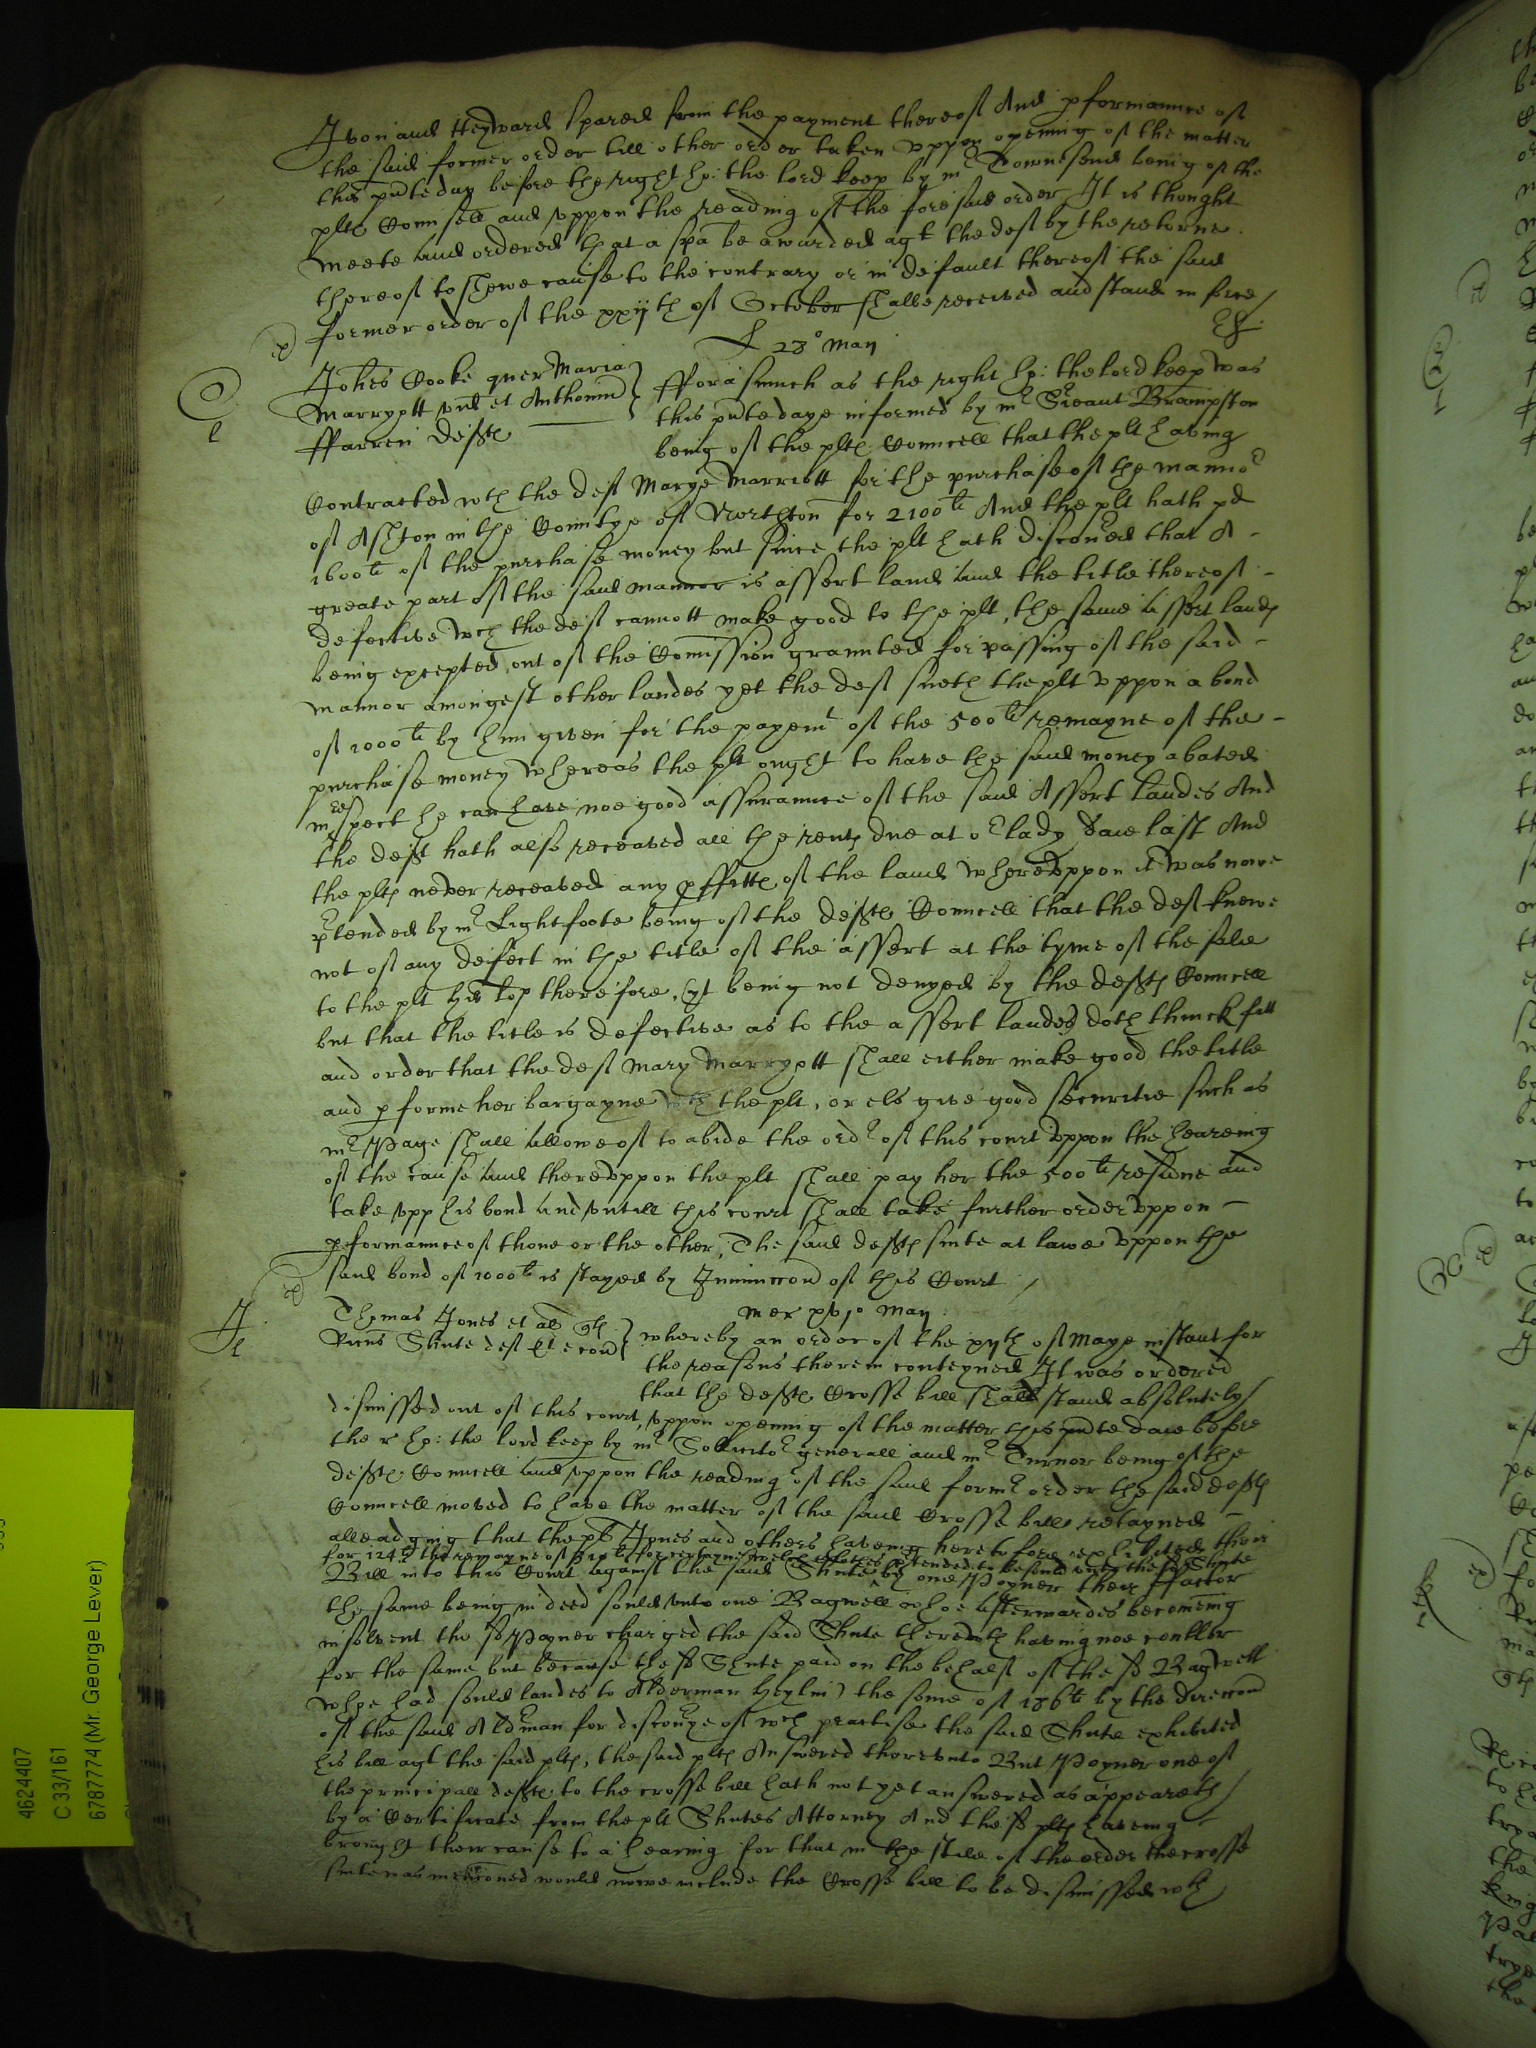 Ivon and Heyward spared from the payment thereof And pformannce of
the said former order till other order taken uppon opening of the matter
this pnte day before the right ho: the lord keep by mr Townesend being of the
plts Counsell and uppon the reading of the foresaid order It is thought
meete and ordered that a spa be awarded agt the deft by the retorne
thereof to shewe cause to the contrary or in default thereof the said
former order of the xxijth of October shalbe received and stand in force
23o Maij
Johes Cooke quer Maria
Marryott vid et Anthonius
ffarren defts
fforasmuch as the right ho: the lord keep was
this pnte daye informed by mr Sieant Brampston
being of the plts Councell that the plt having
Contracted wth the deft Marye Marriott for the purchase of the mannor
of Ashton in the Countye of Northton for 2100li And the plt hath pd
1600li of the purchase money but since the plt hath discoued that A
greate part of the said mannor is assert land and the title thereof
defective wch the deft cannott make good to the plt, the same assert lands
being excepted out of the Comission graunted for passing of the said
mannor amongest other landes yet the deft sueth the plt uppon a bond
of 1000li by him given for the payemt of the 500li remayne of the
purchase money whereas the plt ought to have the said money abated
in respect he can have noe good assurannce of the said Assert landes And
the deft hath alsoe receaved all the rents due at or lady daie last And
the plts never receaved any pffitts of the land whereuppon it was nowe
ptended by mr Lightfoote being of the defts Councell that the deft knewe
not of any defect in the title of the assert at the tyme of the sale
to the plt his lop therefore, yt being not denyed by the defts Councell
but that the title is defective as to the assert landes doth thinck fitt
and order that the deft Mary Marryott shall either make good the title
and pforme her bargayne wth the plt, or els give good securitie such as
mr Page shall allowe of to abide the ordr of this court uppon the heareing
of the cause and thereuppon the plt shall pay her the 500li residue and
take upp his bond and untill this court shall take further order uppon
pformannce of thone or the other, The said defts suite at lawe uppon the
said bond of 1000li is stayed by Iniunccon of this Court
Mer xvio Maij
Thomas Jones et al qts
Ricus Shute deft et e con
whereby an order of the xijth of Maye instant for
the reasons therein conteyned It was ordered
that the defts Crosse bill shall stand absolutely
dismissed out of this court, uppon opening of the matter this pnte daie before
the r ho: the lord keep by mr Sollicitor generall and mr Turnor being of the
defts Councell and uppon the reading of the said formr order the said defts
Councell moved to have the matter of the said Crosse bill retayned
alleadging that the plts Jones and others haveing heretofore exhibited their
for 124li the remayne of 310li for certayne pretended to be sould unto the sd Shute
Bill into this Court against the said Shute by one Poyner their ffactor
the same being in deed sould unto one Bagwell whoe afterwardes becomeing
insolvent the sd Poyner charged the said Shute therewth having noe coullor
for the same but because the sd Shute paid on the behalf of the sd Bagwell
whoe had sould landes to Alderman Heylin the some of 186li by the direccon
of the said Aldman for discouye of wch practise the said Shute exhibited
his bill agt the said plts, the said plts Answered thereunto But Poyner one of
the principall defts to the crosse bill hath not yet answered as appeareth
by a Certificate from the plt Shutes Attorney And the sd plts haveing
brought their cause to a hearing for that in the stile of the order the crosse
suite was mencioned would nowe include the Crosse bill to be dismissed wch
4624407
C 33/161
6787774 (Mr. George Lever)